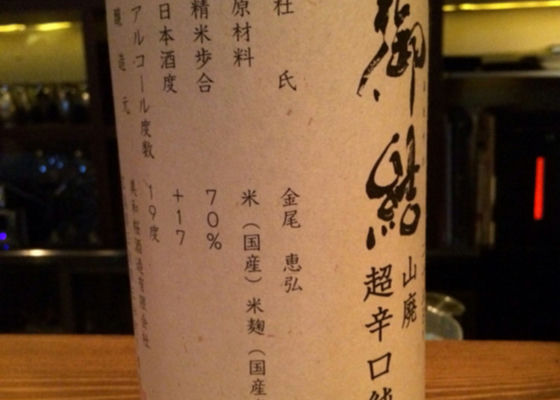 御結
山廃
超辛口純
杜氏 金尾 恵弘
原材料 米（国産）米麹（国産
精米歩合 70%
日本酒度 +17
アルコール度数 19度
醸造元 美和桜酒造有限会社